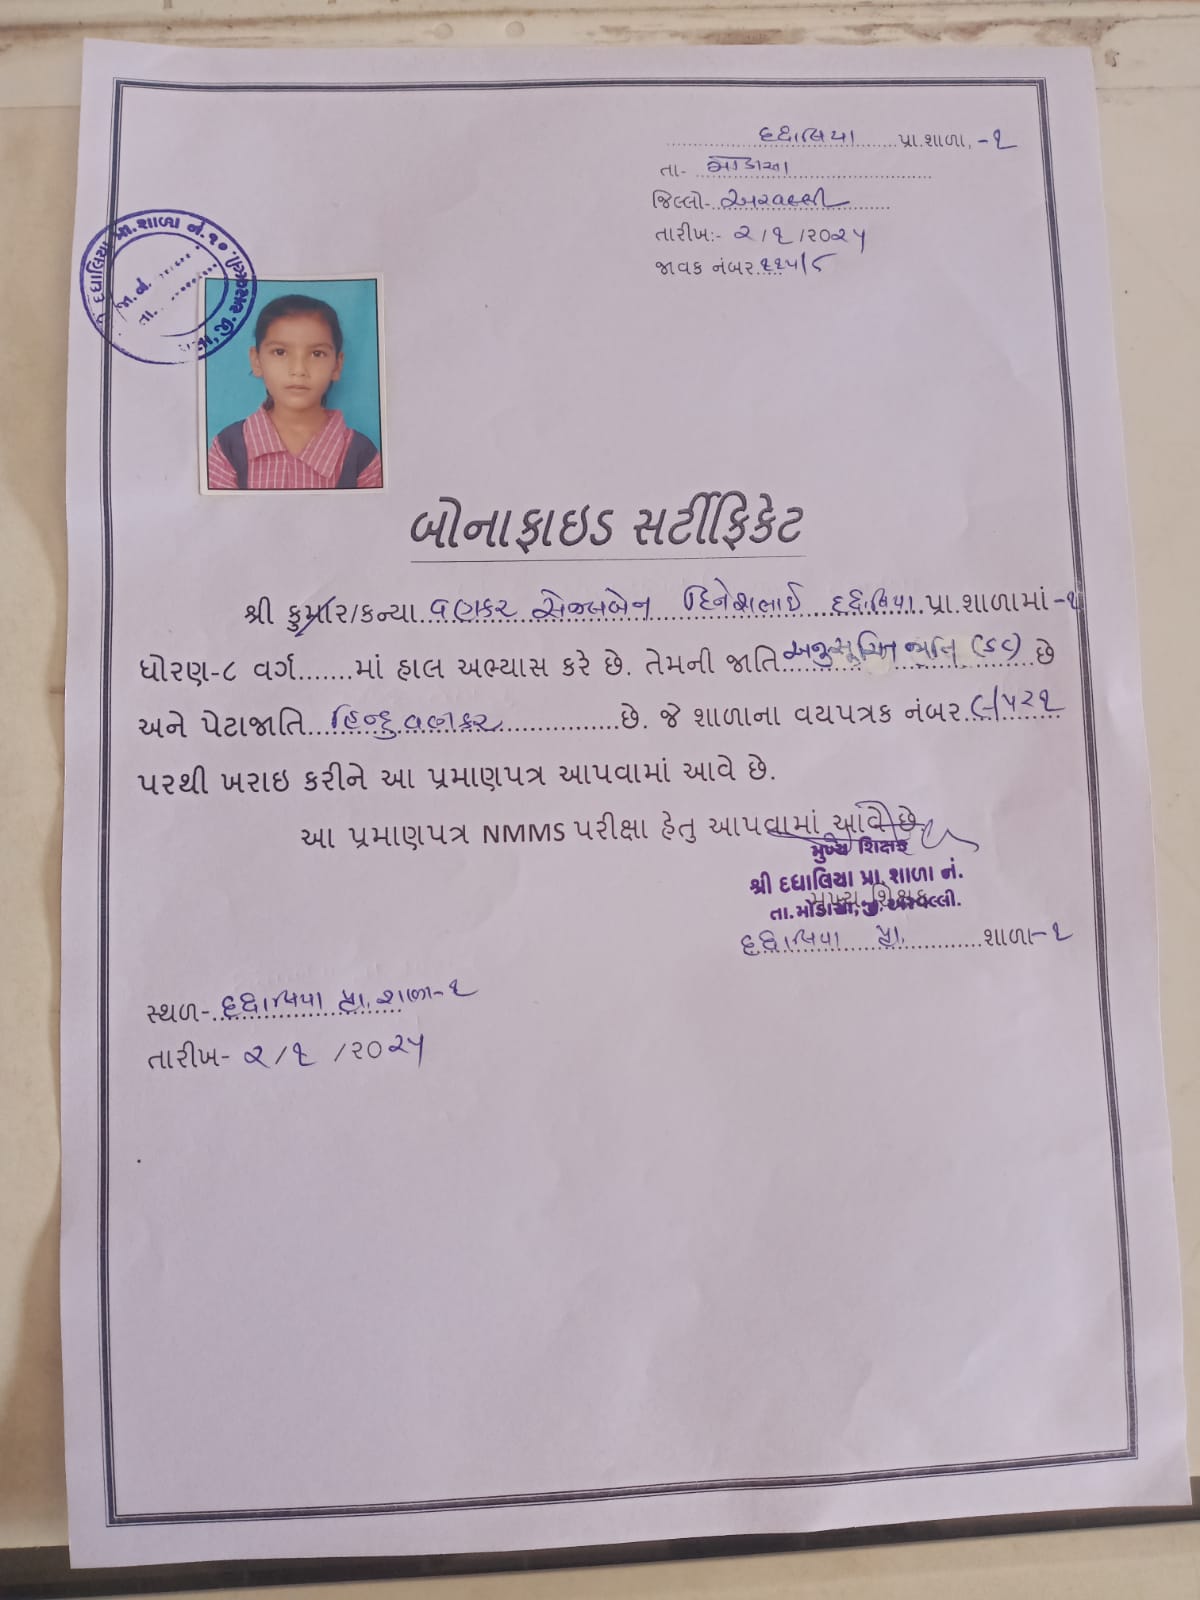 દધાલિયા પ્રા.શાળા, -૧
તા- મોડાસા
જિલ્લો- અરવલ્લી
તારીખ:- ૨/૧/૨૦૨૫
જાવક નંબર ૧૧૫/૮
દધાલિયા પ્રા.શાળા નં.૧૦
જા.નં.
તા.
જી. અરવલ્લી
બોનાફાઇડ સર્ટીફિકેટ
શ્રી કુમાર/કન્યા વણકર સેજલબેન દિનેશભાઈ દધાલિયા પ્રા.શાળામાં -૧
ધોરણ-૮ વર્ગ.......માં હાલ અભ્યાસ કરે છે. તેમની જાતિ અનુસૂચિત જાતિ (SC) છે
અને પેટાજાતિ હિન્દુ વણકર છે. જે શાળાના વયપત્રક નંબર ૯/૫૨૧
પરથી ખરાઇ કરીને આ પ્રમાણપત્ર આપવામાં આવે છે.
આ પ્રમાણપત્ર NMMS પરીક્ષા હેતુ આપવામાં આવે છે.
મુખ્ય શિક્ષક
શ્રી દધાલિયા પ્રા. શાળા નં.
મુખ્ય શિક્ષક
તા.મોડાસા, જી. અરવલ્લી.
દધાલિયા પ્રા. શાળા-૧
સ્થળ- દધાલિયા પ્રા. શાળા-૧
તારીખ- ૨/૧/૨૦૨૫